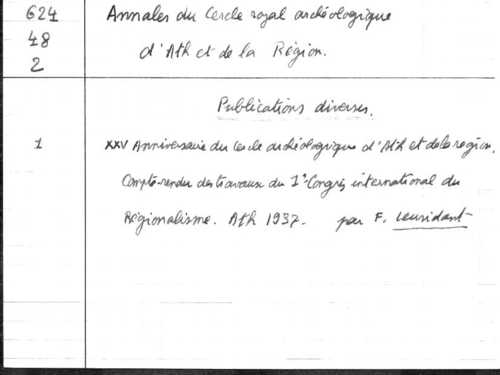 624 Annales du Cercle royal archéologique
48 d'Ath et de la Région.
2
Publications diverses.
1 XXV Anniversaire du Cercle archéologique d'Ath et de la région.
Compte-rendu des travaux du 1° Congrès international du
Régionalisme. Ath 1937. par F. Leuridant